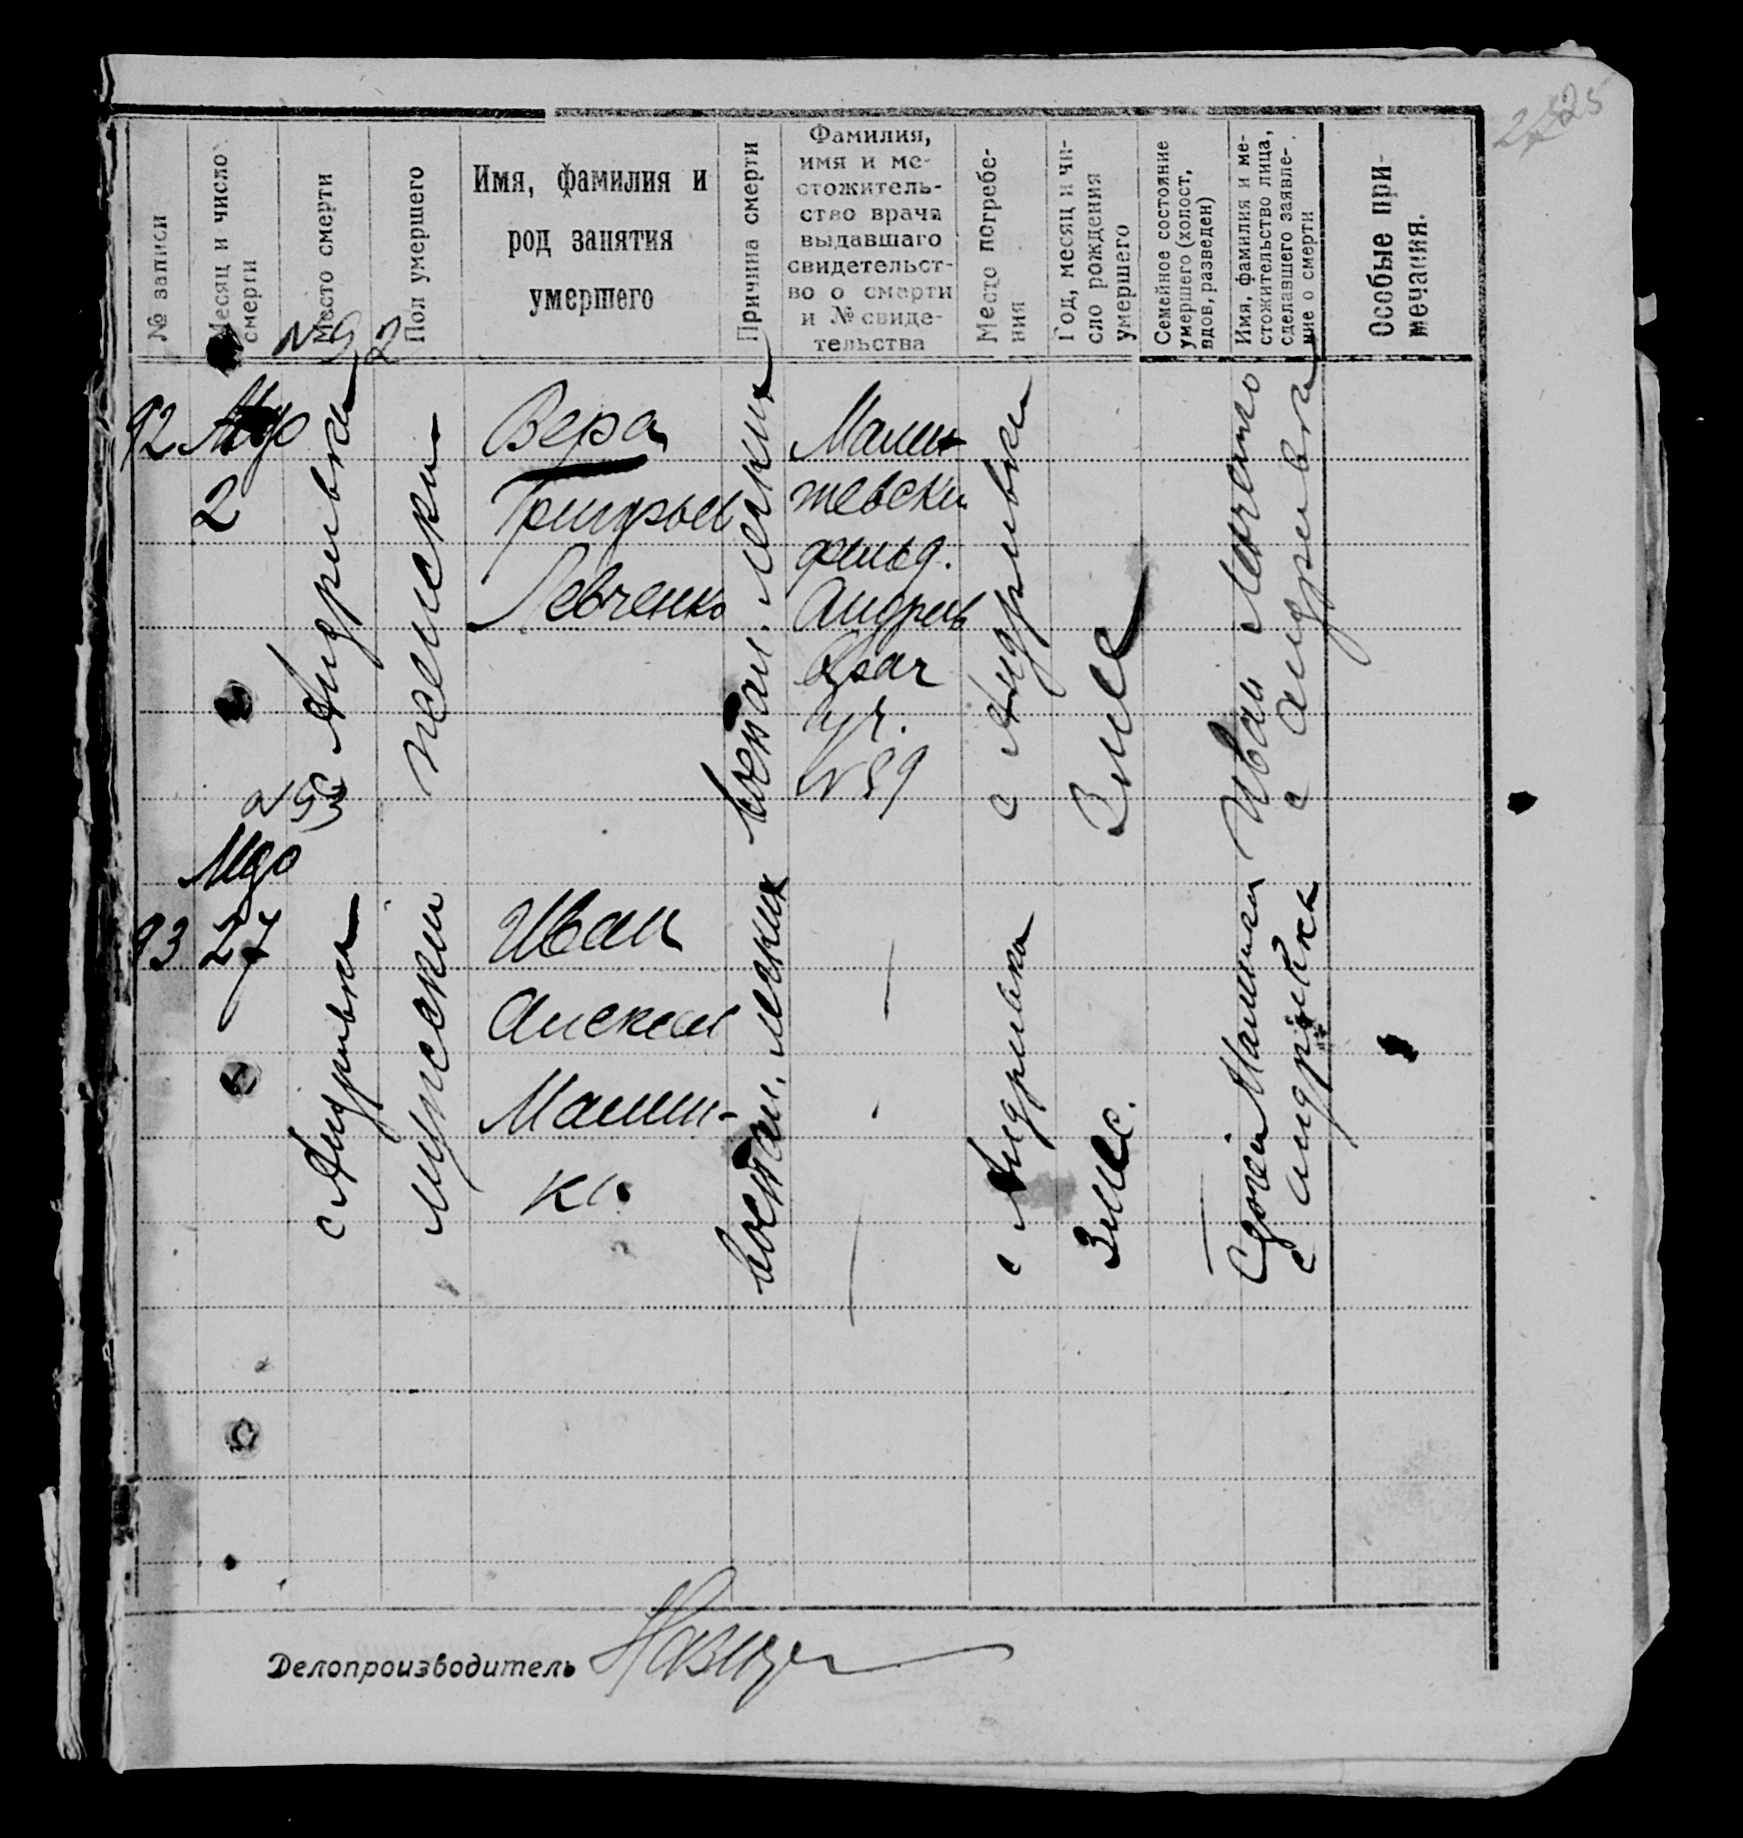 25
№ записи
Месяц и число
смерти
Место смерти
Пол умершего
Имя, фамилия и
род занятия
умершего
Причина смерти
Фамилия,
имя и ме-
стожитель-
ство врача
выдавшаго
свидетельст-
во о смерти
и № свиде-
тельства
Место погребе-
ния
Год, месяц и чи-
сло рождения
умершего
Семейное состояние
умершего (холост,
вдов, разведен)
Имя, фамилия и ме-
стожительство лица,
сделавшего заявле-
ние о смерти
Особые при-
мечания.
N 92
92
2
с Андривка
женски
Вера
Григорьев
Левченко
воспал. легких
фельд.
Андреев
врач
уч.
N 59
с Андривка
3 мес
Иван Левченко
с Андривка
N 93
93
27
с Андривка
мужески
Иван
Алексеев
воспал. легких
с Андривка
3 мес.
с Андривка
Делопроизводитель